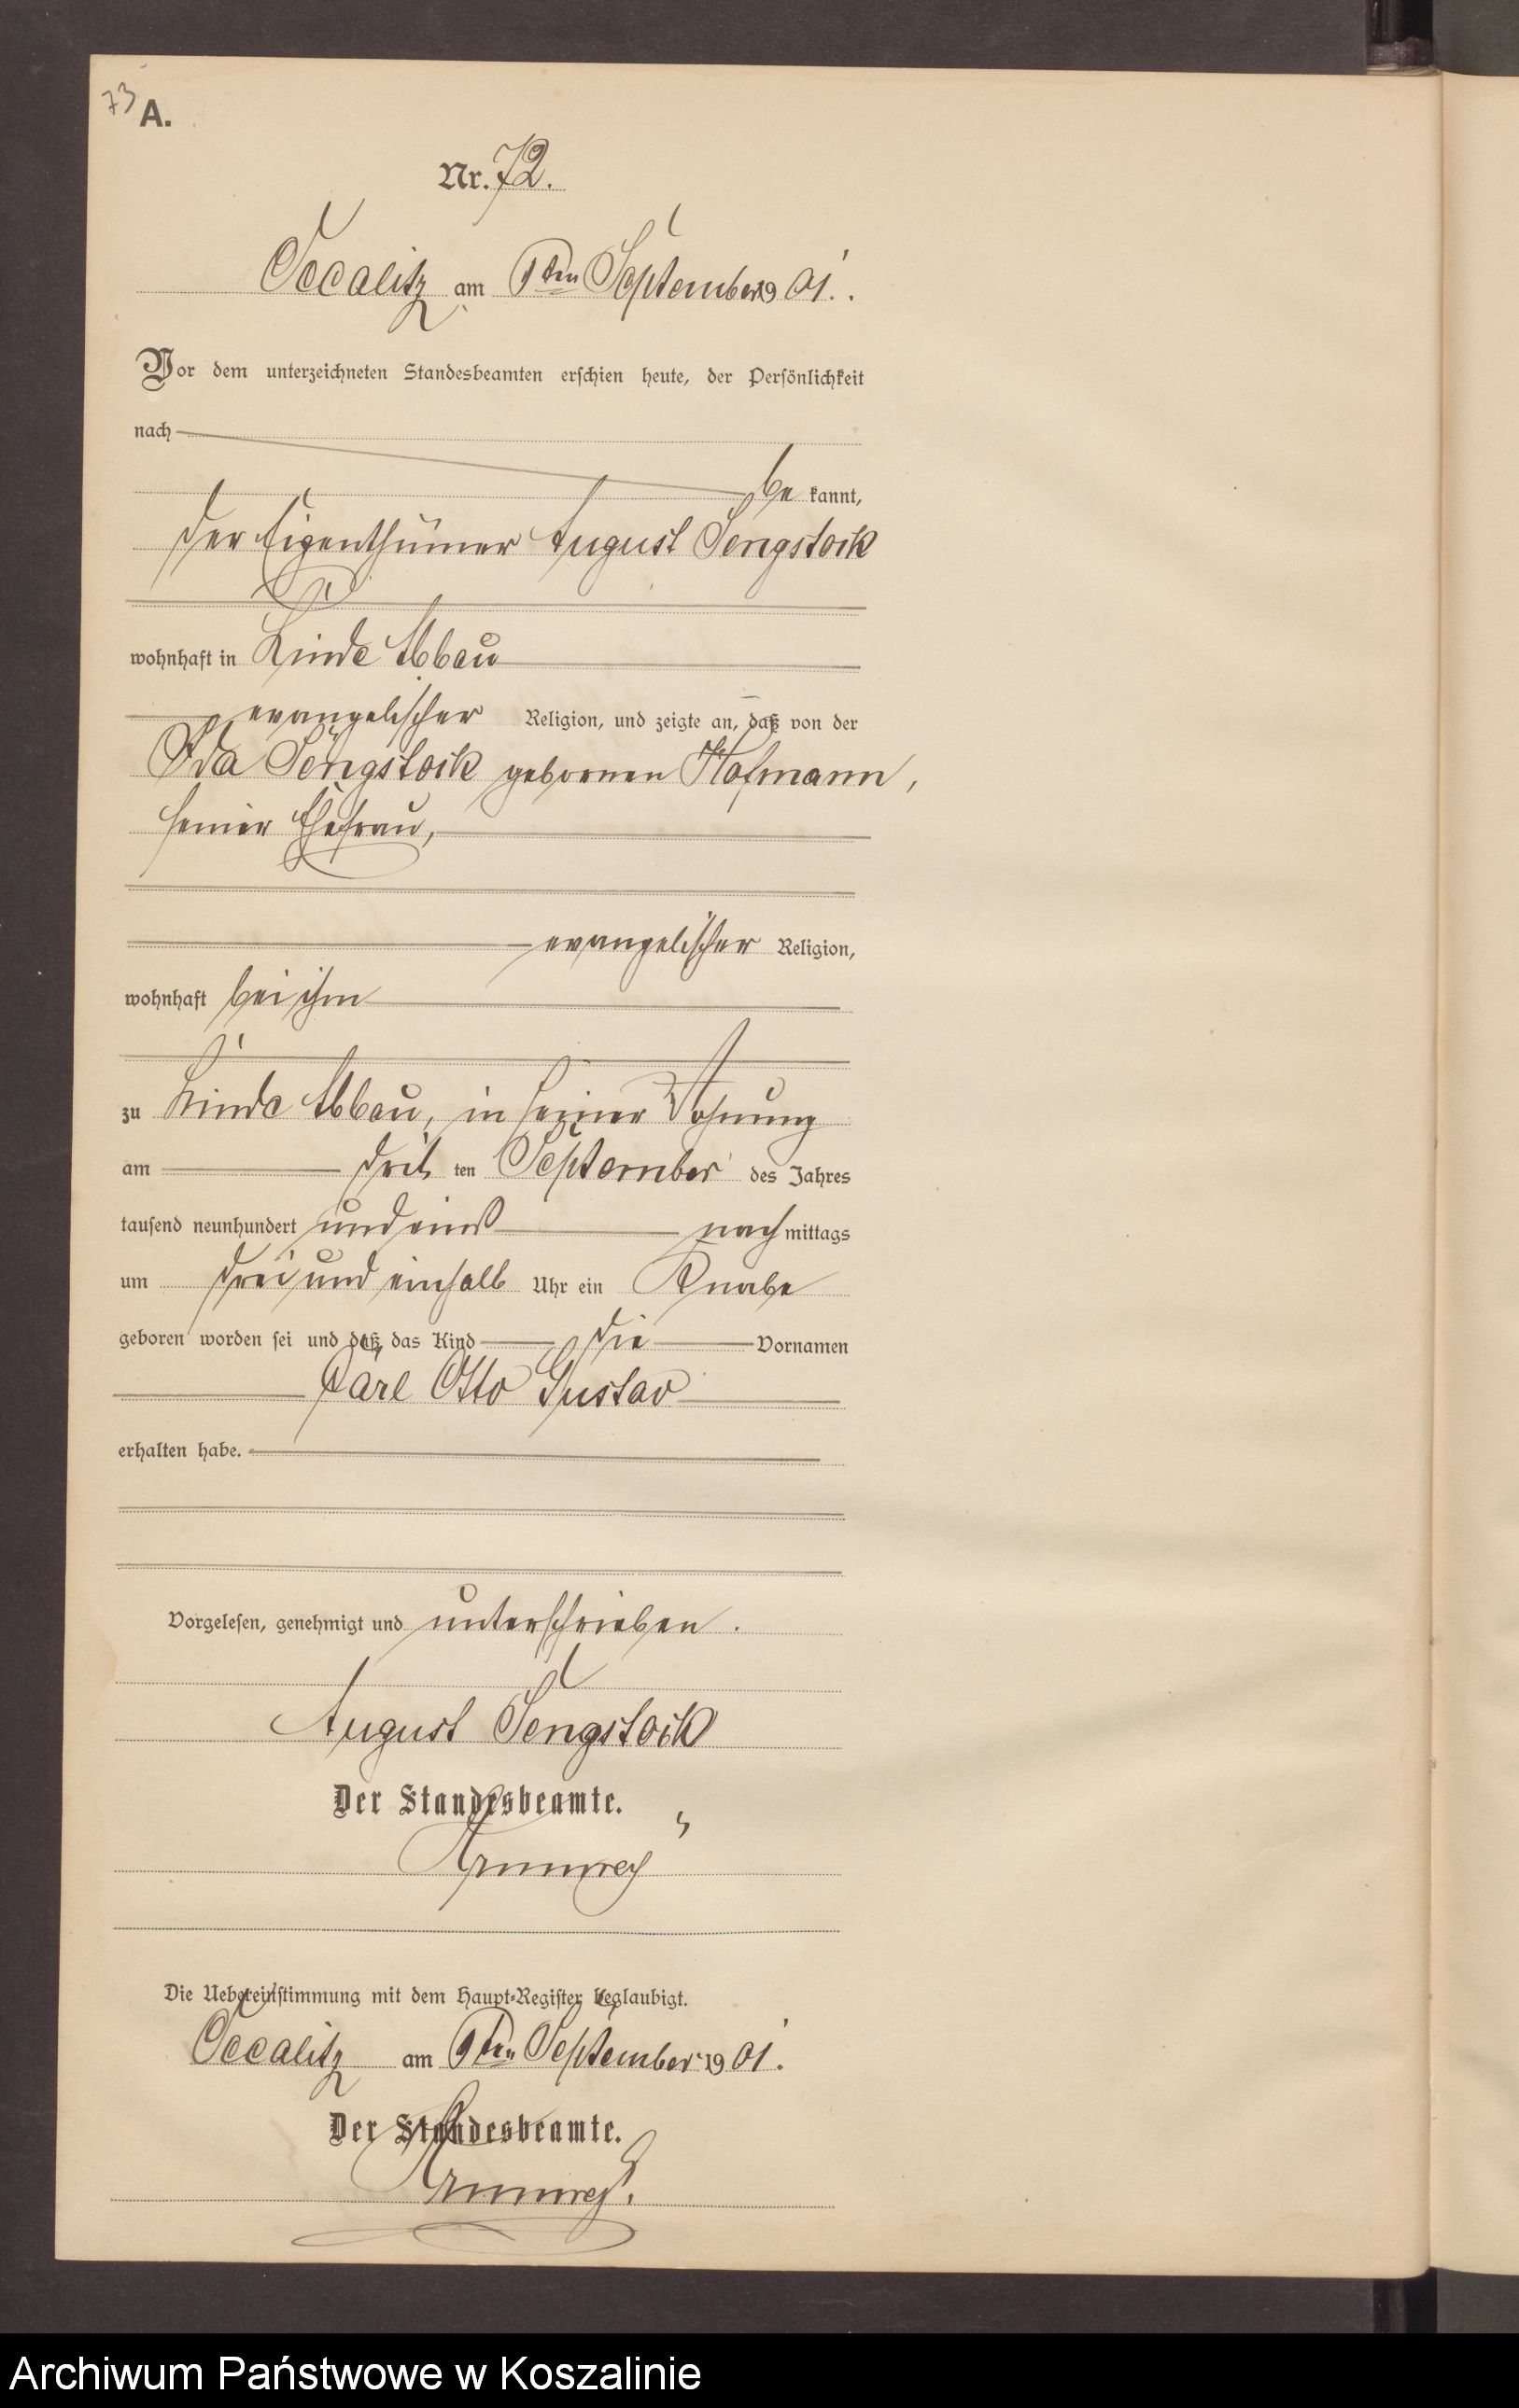 73
A.
Nr. 72.
Occalitz am 9ten September 1901.
Vor dem unterzeichneten Standesbeamten erschien heute, der Persönlichkeit
nach
be kannt,
der Eigenthümer August Sengstock
wohnhaft in Linde Abbau
evangelischer Religion, und zeigte an, daß von der
Ida Sengstock geborenen Hofmann,
seiner Ehefrau,
evangelischer Religion,
wohnhaft bei ihm
zu Linde Abbau, in seiner Wohnung
am drit ten September des Jahres
tausend neunhundert und eins nach mittags
um drei und einhalb Uhr ein Knabe
geboren worden sei und daß das Kind die Vornamen
Carl Otto Gustav
erhalten habe.
Vorgelesen, genehmigt und unterschrieben.
August Sengstock
Der Standesbeamte.
Die Uebereinstimmung mit dem Haupt-Register beglaubigt.
Occalitz am 9ten September 1901.
Der Standesbeamte.
Archiwum Państwowe w Koszalinie